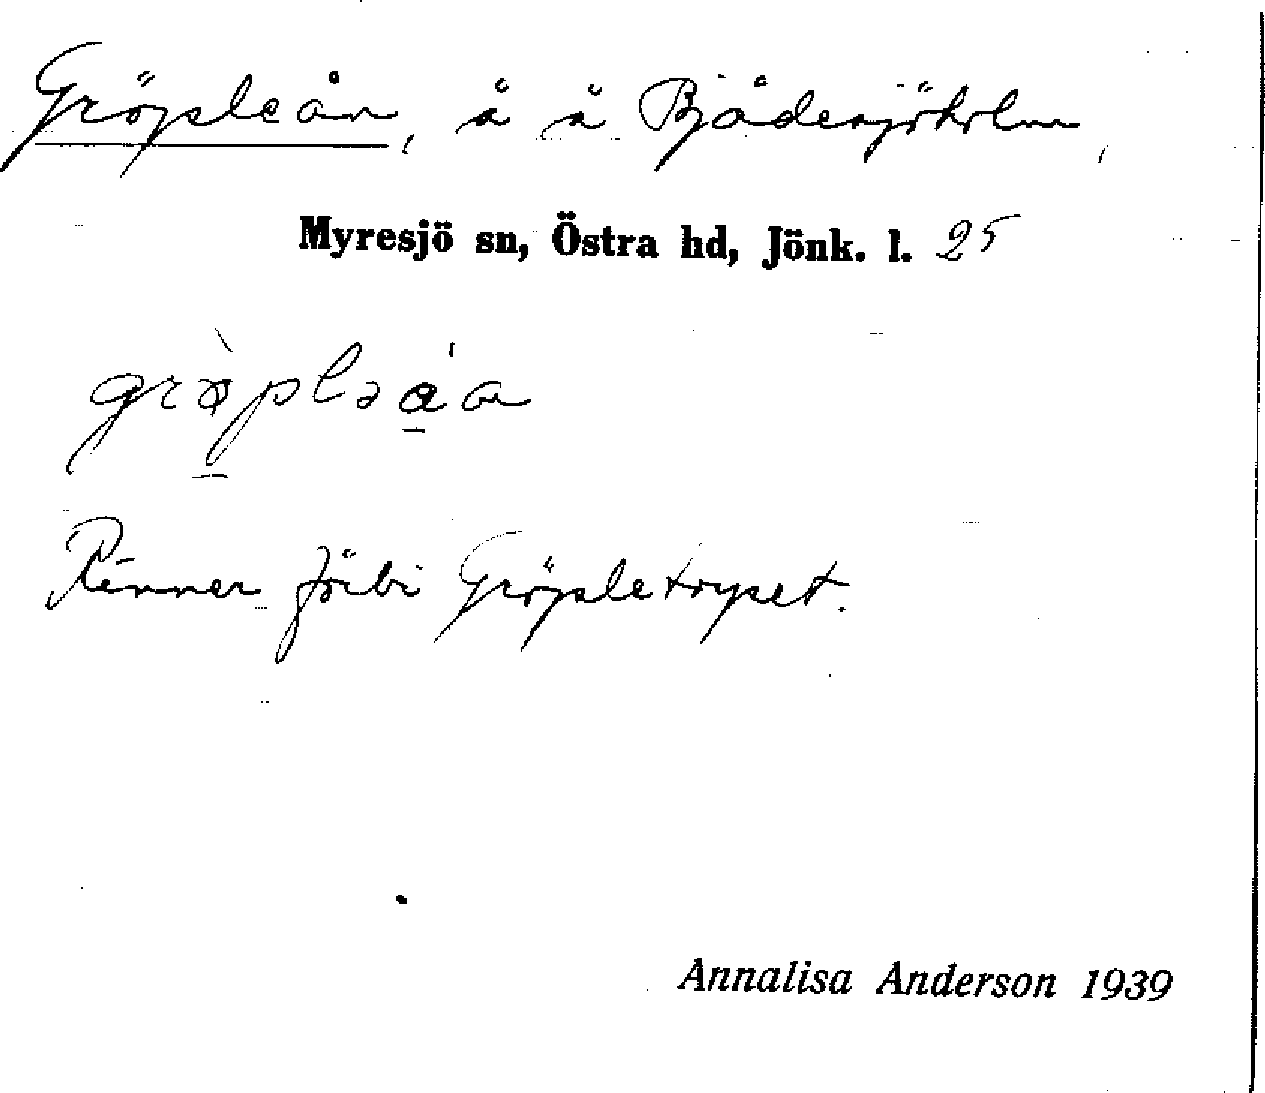 Gröpleån, å å Bjädesjöholm,
Myresjö sn, Östra hd, Jönk. l. 25
grø̀pləáa
Rinner förbi Gröpletorpet.
Annalisa Anderson 1939